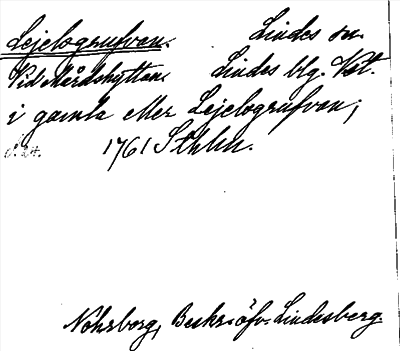 Lejelogrufvan. Lindes sn.
Vid Mårdshyttan. Lindes blg. Vstm.
i gamla eller Lejelogrufvan;
1761 Sthlm.
Nohrborg, Beskr. öfv. Lindesberg.